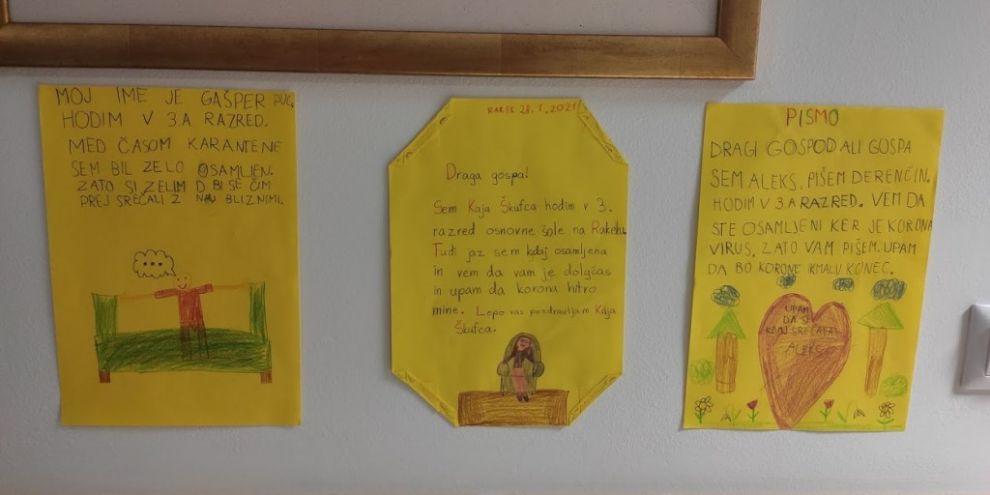 MOJ IME JE GAŠPER PUC,
HODIM V 3.A RAZRED.
MED ČASOM KARANTENE
SEM BIL ZELO OSAMLJEN.
ZATO SI ŽELIM D BI SE ČIM
PREJ SREČALI Z BLIŽNIMI.
...
RAKEK 28.1.2021
Draga gospa!
Sem Kaja Škufca hodim v 3.
razred osnovne šole na Rakeku.
Tudi jaz sem kdaj osamljena
in vem da vam je dolgčas
in upam da korona hitro
mine. Lepo vas pozdravljam Kaja
Škufca.
PISMO
DRAGI GOSPOD ALI GOSPA
SEM ALEKS. PIŠEM DERENČIN.
HODIM V 3.A RAZRED. VEM DA
STE OSAMLJENI KER JE KORONA
VIRUS. ZATO VAM PIŠEM. UPAM
DA BO KORONE KMALU KONEC.
UPAM
DA SE
KDAJ SREČAVA
ALEKS